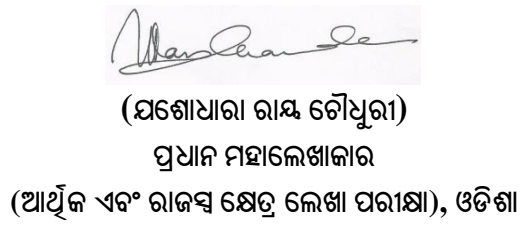 (ଯଶୋଧାରା ରାୟ ଚୌଧୁରୀ)
ପ୍ରଧାନ ମହାଲେଖାକାର
(ଆର୍ଥିକ ଏବଂ ରାଜସ୍ୱ କ୍ଷେତ୍ର ଲେଖା ପରୀକ୍ଷା), ଓଡିଶା